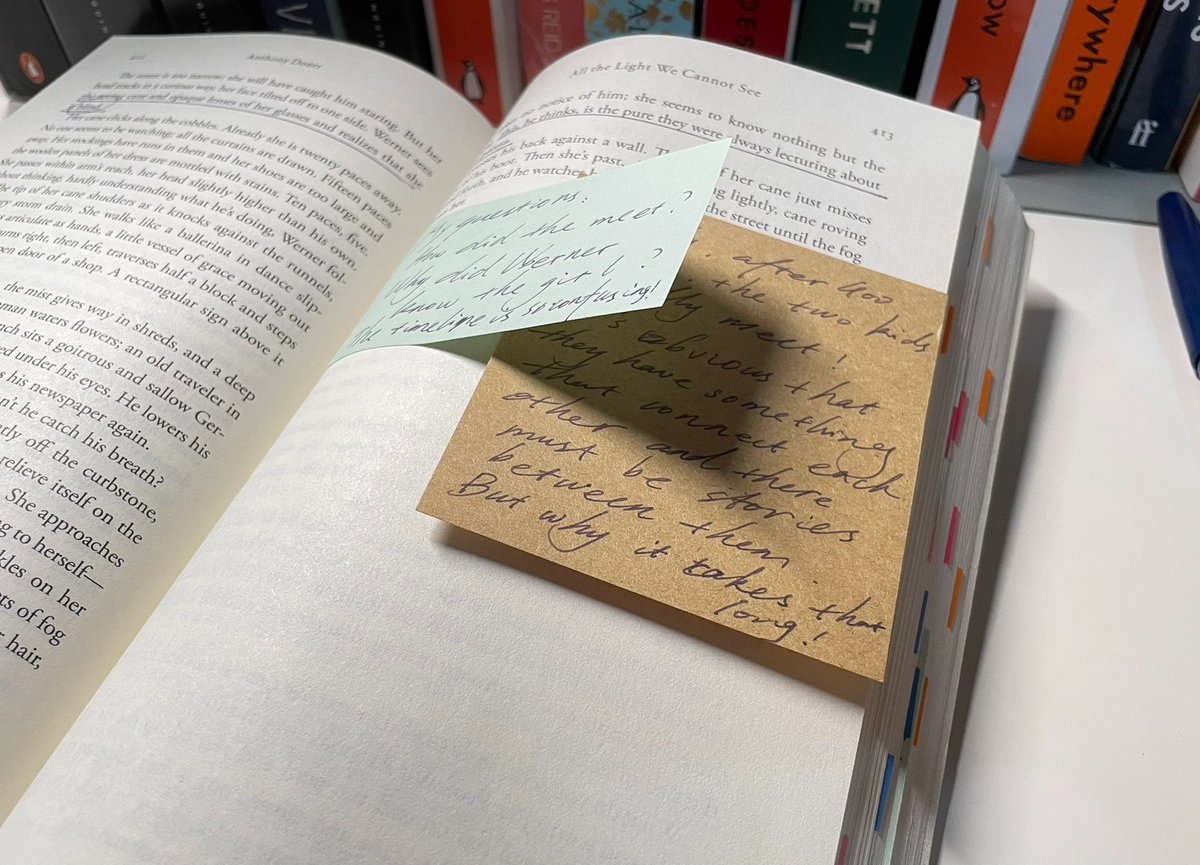 Anthony Doerr
The street is too narrow; she will have caught him staring. But her
head tracks in a curious way, her face tilted off to one side. Werner sees
the roving eyes and opaque lenses of her glasses and realizes that she
is blind.
Her cane clicks along the cobbles. Already she is twenty paces away.
No one seems to be watching; all the curtains are drawn. Fifteen paces
away. Her stockings have runs in them and her shoes are too large and
the woolen panels of her dress are mottled with stains. Ten paces, five.
She passes within arm's reach, her head slightly higher than his own.
Without thinking, hardly understanding what he's doing, Werner fol-
The tip of her cane shudders as it knocks against the runnels,
ery storm drain. She walks like a ballerina in dance slip-
s articulate as hands, a little vessel of grace moving out
urns right, then left, traverses half a block and steps
pen door of a shop. A rectangular sign above it
the mist gives way in shreds, and a deep
man waters flowers; an old traveler in
nch sits a goitrous and sallow Ger-
ed under his eyes. He lowers his
s his newspaper again.
n't he catch his breath?
ntly off the curbstone,
relieve itself on the
She approaches
ng to herself—
kles on her
ts of fog
r hair,
All the Light We Cannot See
413
notice of him; she seems to know nothing but the
This, he thinks, is the pure they were always lecturing about
his back against a wall. Th of her cane just misses
his boot. Then she's past, ng lightly, cane roving
forth, and he watches the street until the fog
questions:
How did the meet?
Why did Werner
know the girl?
The timeline is so confusing!
after 400
the two kids
meet!
obvious that
they have something
that connect each
other and there
must be stories
between them.
But why it takes that
long!
REID
ETT
OW
ywhere
ff